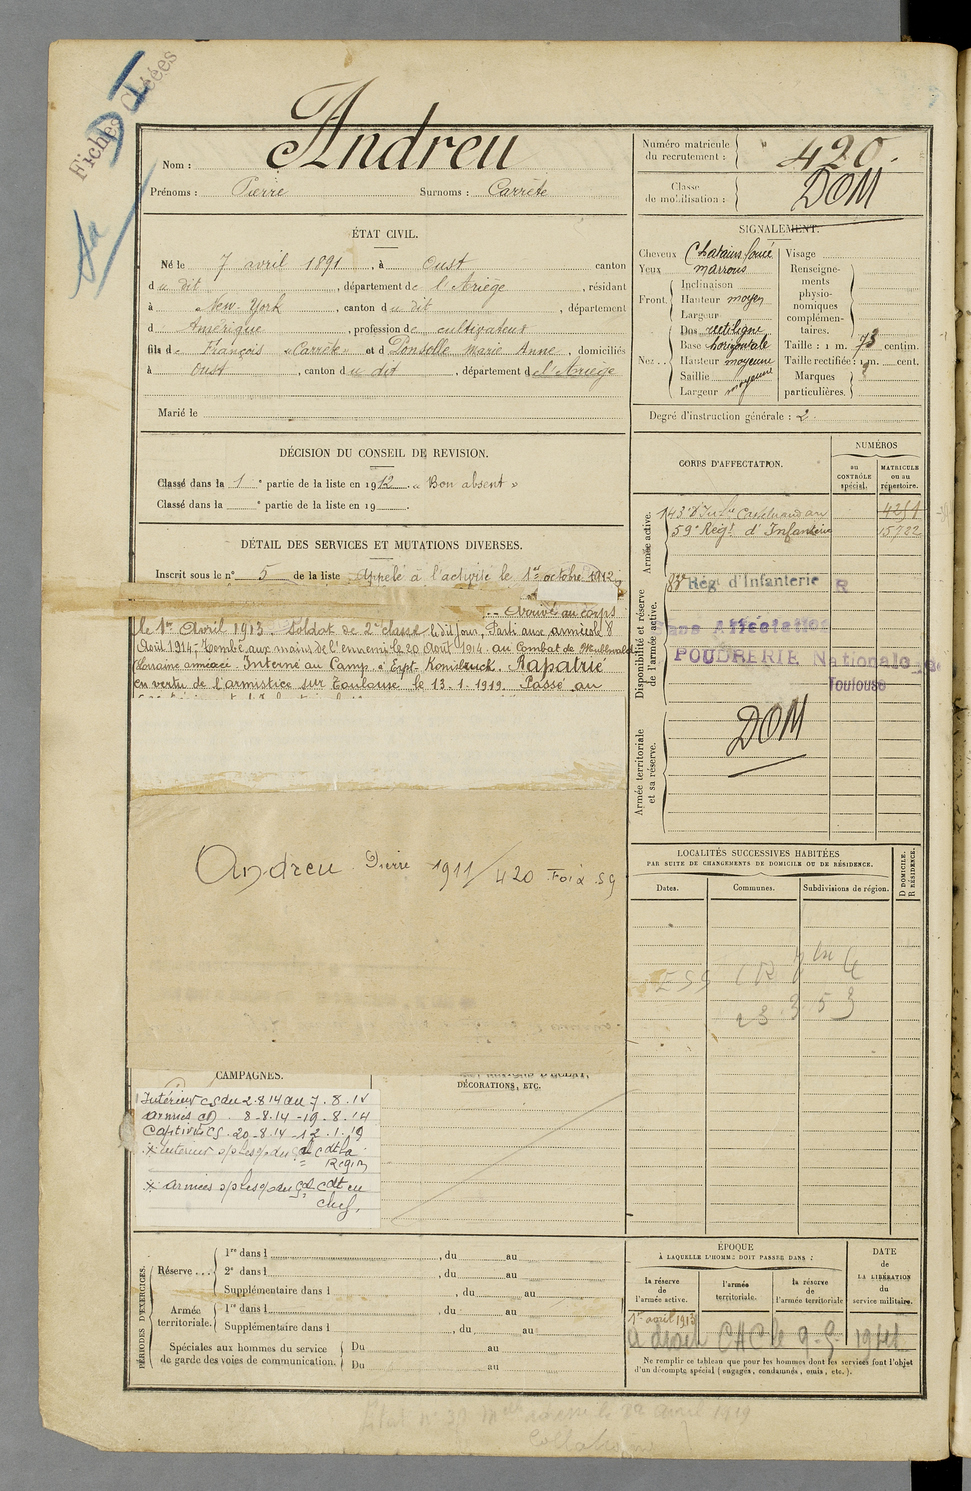 Fiches
Andreu
Nom :
Prénoms : Pierre Surnoms : Carrète
Numéro matricule
du recrutement : 420.
Classe
de mobilisation : DOM
ÉTAT CIVIL.
Né le 7 avril 1891, à Oust canton
du dit, département de l'Ariège, résidant
à New-York, canton du dit, département
d Amérique, profession de cultivateur
fils de François "Carrète" et de Ponsolle Marie Anne, domiciliés
à Oust, canton du dit, département de l'Ariège
Marié le
SIGNALEMENT.
Cheveux Chatains foncé
Yeux marrons
Front. Inclinaison
Hauteur moyen
Largeur
Nez. Dos rectiligne
Base horizontale
Hauteur moyenne
Saillie moyenne
Largeur moyenne
Visage
Renseigne-
ments
physio-
nomiques
complémen-
taires.
Taille : 1 m. 73 centim.
Taille rectifiée : 1 m. cent.
Marques
particulières.
Degré d'instruction générale : 2.
DÉCISION DU CONSEIL DE REVISION.
Classé dans la 1e partie de la liste en 1912. « Bon absent »
Classé dans la e partie de la liste en 19
DÉTAIL DES SERVICES ET MUTATIONS DIVERSES.
Inscrit sous le n° 5 de la liste Appelé à l'activité le 1er octobre 1912,
Arrivé au corps
le 1er Avril 1913. Soldat de 2e classe ledit jour, Parti aux armées le 8
Août 1914. Tombé aux mains de l'ennemi le 20 Août 1914. au Combat de
Lorraine annexée. Interné au Camp Rapatrié
en vertu de l'armistice sur Toulouse le 13.1.1919. Passé au
CORPS D'AFFECTATION.
NUMÉROS
au
CONTRÔLE
spécial.
MATRICULE
ou au
répertoire.
Armée active.
143e d'Infie Castelnaudary 4251
59e Régt d'Infanterie 15722
Disponibilité et réserve
de l'armée active.
Rég. d'Infanterie R
Sans Affectation
POUDRERIE Nationale de
Toulouse
Armée territoriale
et sa réserve.
DOM
Andreu Pierre 1911/420 Foix SG
LOCALITÉS SUCCESSIVES HABITÉES
PAR SUITE DE CHANGEMENTS DE DOMICILE OU DE RÉSIDENCE.
Dates.
Communes.
Subdivisions de région.
D DOMICILE.
R RÉSIDENCE.
CAMPAGNES.
Intérieur CS du 2.8.14 au 7.8.14
Armées CD. 8-8.14 -19-8.14
Captivité CS. 20-8.14 -12.1.19
DÉCORATIONS, ETC.
PÉRIODES D'EXERCICES.
Réserve...
1re dans l , du au
2e dans l , du au
Supplémentaire dans l , du au
Armée
territoriale.
1re dans l , du au
Supplémentaire dans l , du au
Spéciales aux hommes du service
de garde des voies de communication.
Du au
Du au
ÉPOQUE
À LAQUELLE L'HOMME DOIT PASSER DANS :
la réserve
de
l'armée active.
l'armée
territoriale.
la réserve
de
l'armée territoriale
DATE
de
LA LIBÉRATION
du
service militaire.
1er avril 1913
Ne remplir ce tableau que pour les hommes dont les services font l'objet
d'un décompte spécial (engagés, condamnés, omis, etc.).